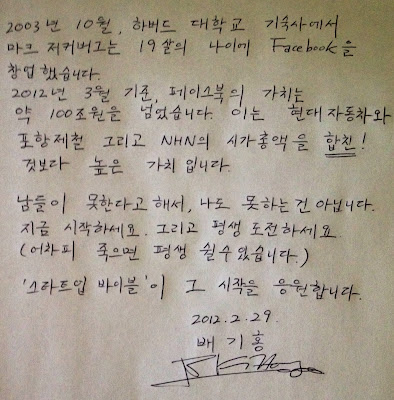 2003년 10월, 하버드 대학교 기숙사에서
마크 저커버그는 19살의 나이에 Facebook을
창업했습니다.
2012년 3월 기준, 페이스북의 가치는
약 100조원을 넘었습니다. 이는 현대자동차와
포항제철 그리고 NHN의 시가총액을 합친!
것보다 높은 가치 입니다.
남들이 못한다고 해서, 나도 못하는 건 아닙니다.
지금 시작하세요. 그리고 평생 도전하세요.
(어차피 죽으면 평생 쉴 수 있습니다.)
'스타트업 바이블'이 그 시작을 응원합니다.
2012.2.29.
배기홍